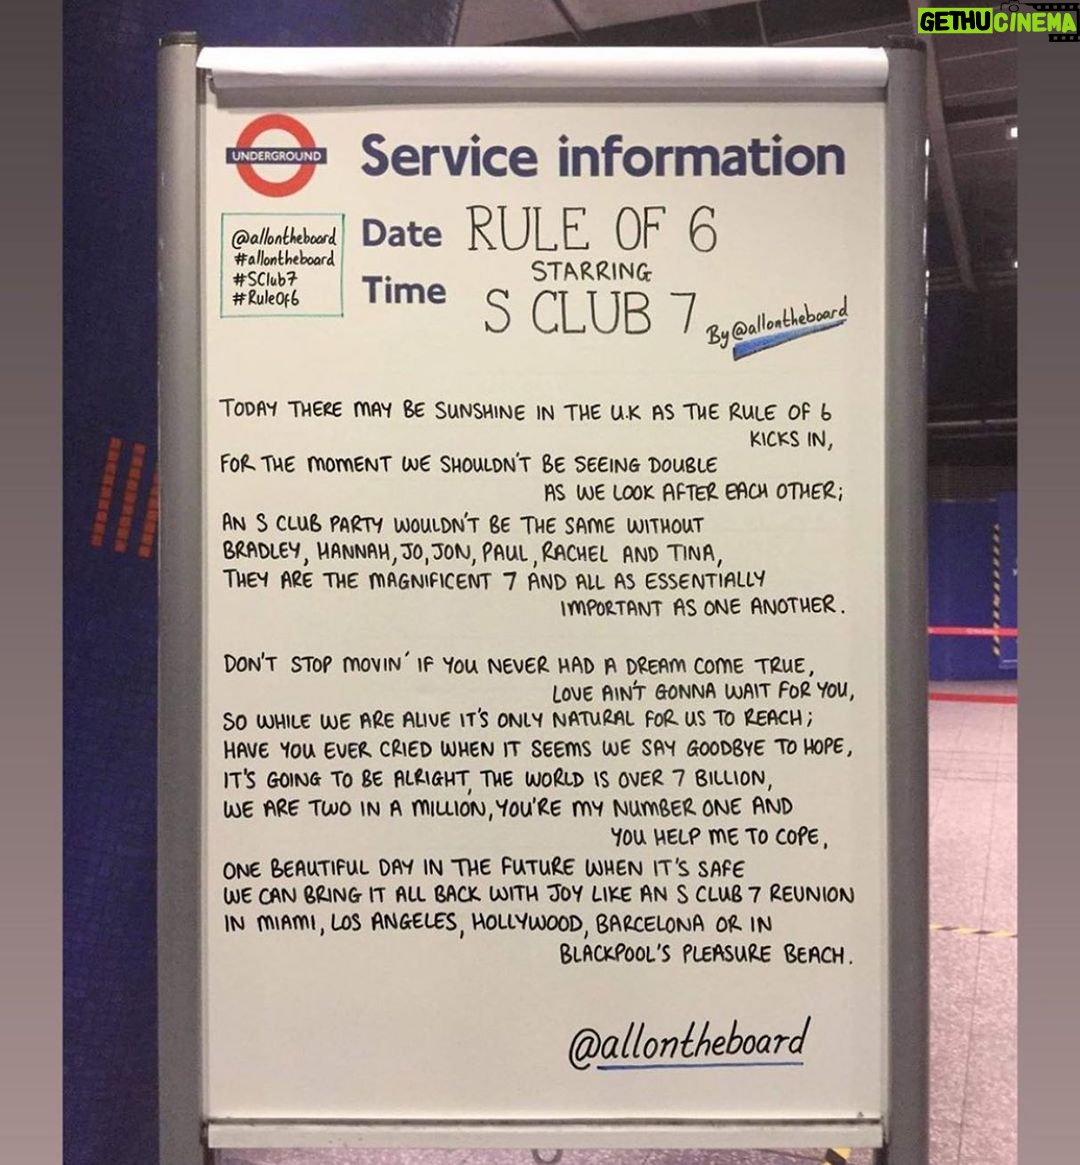 GETHUCINEMA
UNDERGROUND
Service information
@allontheboard
#allontheboard
#SClub7
#RuleOf6
Date RULE OF 6
STARRING
Time S CLUB 7
By @allontheboard
TODAY THERE MAY BE SUNSHINE IN THE U.K AS THE RULE OF 6
KICKS IN,
FOR THE MOMENT WE SHOULDN'T BE SEEING DOUBLE
AS WE LOOK AFTER EACH OTHER;
AN S CLUB PARTY WOULDN'T BE THE SAME WITHOUT
BRADLEY, HANNAH, JO, JON, PAUL, RACHEL AND TINA,
THEY ARE THE MAGNIFICENT 7 AND ALL AS ESSENTIALLY
IMPORTANT AS ONE ANOTHER.
DON'T STOP MOVIN' IF YOU NEVER HAD A DREAM COME TRUE,
LOVE AIN'T GONNA WAIT FOR YOU,
SO WHILE WE ARE ALIVE IT'S ONLY NATURAL FOR US TO REACH;
HAVE YOU EVER CRIED WHEN IT SEEMS WE SAY GOODBYE TO HOPE,
IT'S GOING TO BE ALRIGHT, THE WORLD IS OVER 7 BILLION,
WE ARE TWO IN A MILLION, YOU'RE MY NUMBER ONE AND
YOU HELP ME TO COPE,
ONE BEAUTIFUL DAY IN THE FUTURE WHEN IT'S SAFE
WE CAN BRING IT ALL BACK WITH JOY LIKE AN S CLUB 7 REUNION
IN MIAMI, LOS ANGELES, HOLLYWOOD, BARCELONA OR IN
BLACKPOOL'S PLEASURE BEACH.
@allontheboard